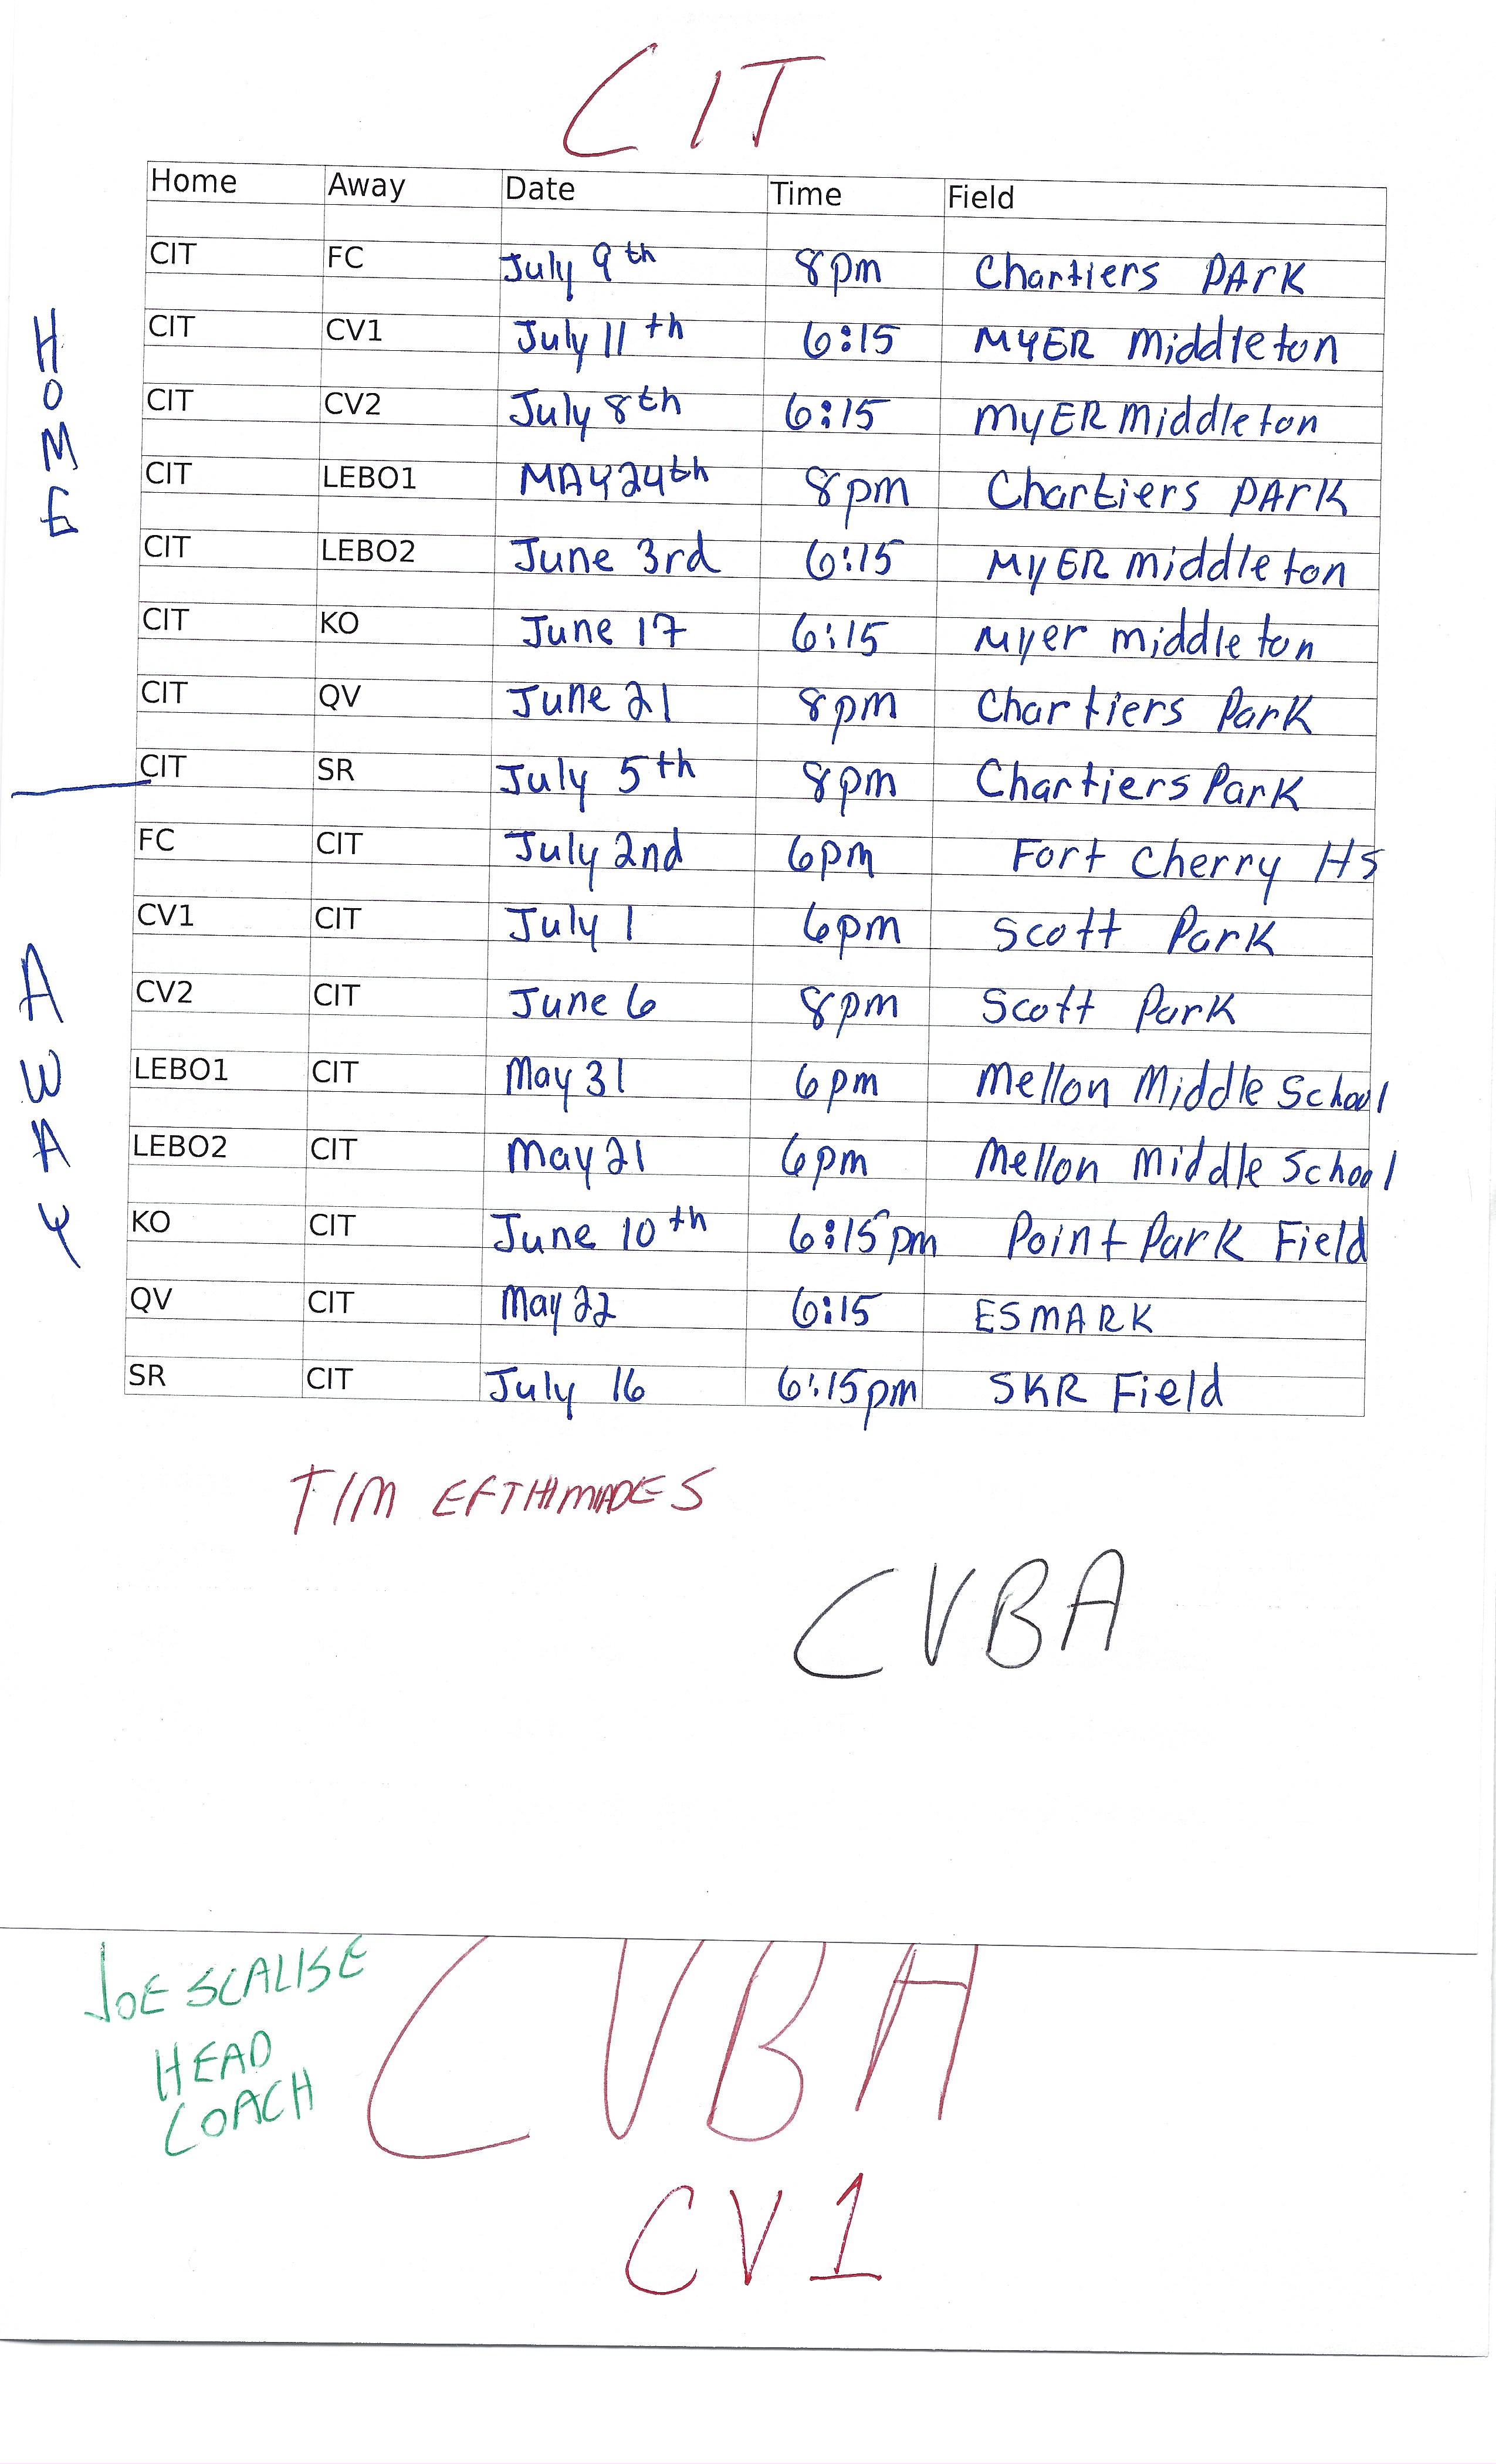 CIT
Home Away Date Time Field
CIT FC July 9th 8pm Chartiers PArK
CIT CV1 July 11th 6:15 MYER Middleton
CIT CV2 July 8th 6:15 MyER Middleton
CIT LEBO1 MAY 24th 8pm Chartiers PArK
CIT LEBO2 June 3rd 6:15 MyER middleton
CIT KO June 17 6:15 Myer middleton
CIT QV June 21 8pm Chartiers Park
CIT SR July 5th 8pm Chartiers Park
FC CIT July 2nd 6pm Fort Cherry HS
CV1 CIT July 1 6pm Scott Park
CV2 CIT June 6 8pm Scott Park
LEBO1 CIT May 31 6pm Mellon Middle School
LEBO2 CIT May 21 6pm Mellon Middle School
KO CIT June 10th 6:15pm Point Park Field
QV CIT May 22 6:15 ESMARK
SR CIT July 16 6:15pm SKR Field
HOME
AWAY
TIM EFTHIMIADES
CVBA
JOE SCALISE
HEAD
COACH
CVBA
CV1